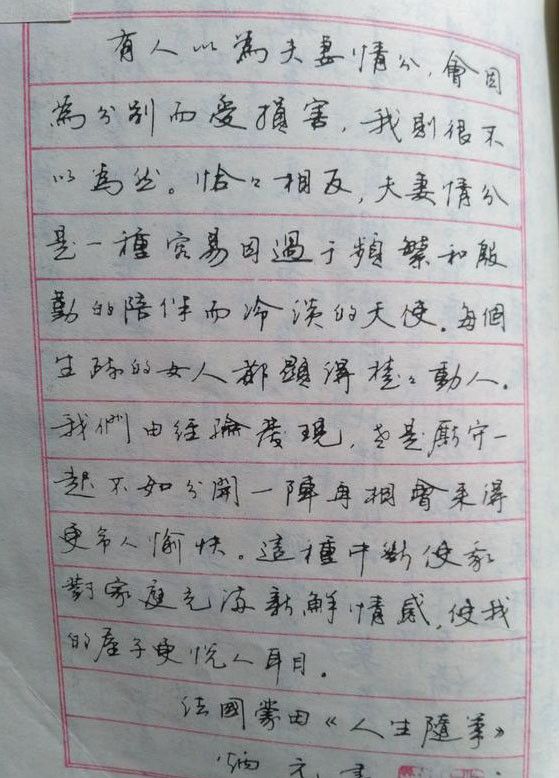 有人以為夫妻情分，會因
為分別而受損害，我則很不
以為然。恰々相反，夫妻情分
是一種容易因過于頻繁和殷
勤的陪伴而冷淡的天使．每個
生疏的女人都顯得楚々動人．
我們由經驗發現，老是厮守一
起不如分開一陣再相會來得
更令人愉快。這種中斷使我
對家庭充滿新鮮情感，使我
的屋子更悅人耳目．
法國蒙田《人生隨筆》
炳元